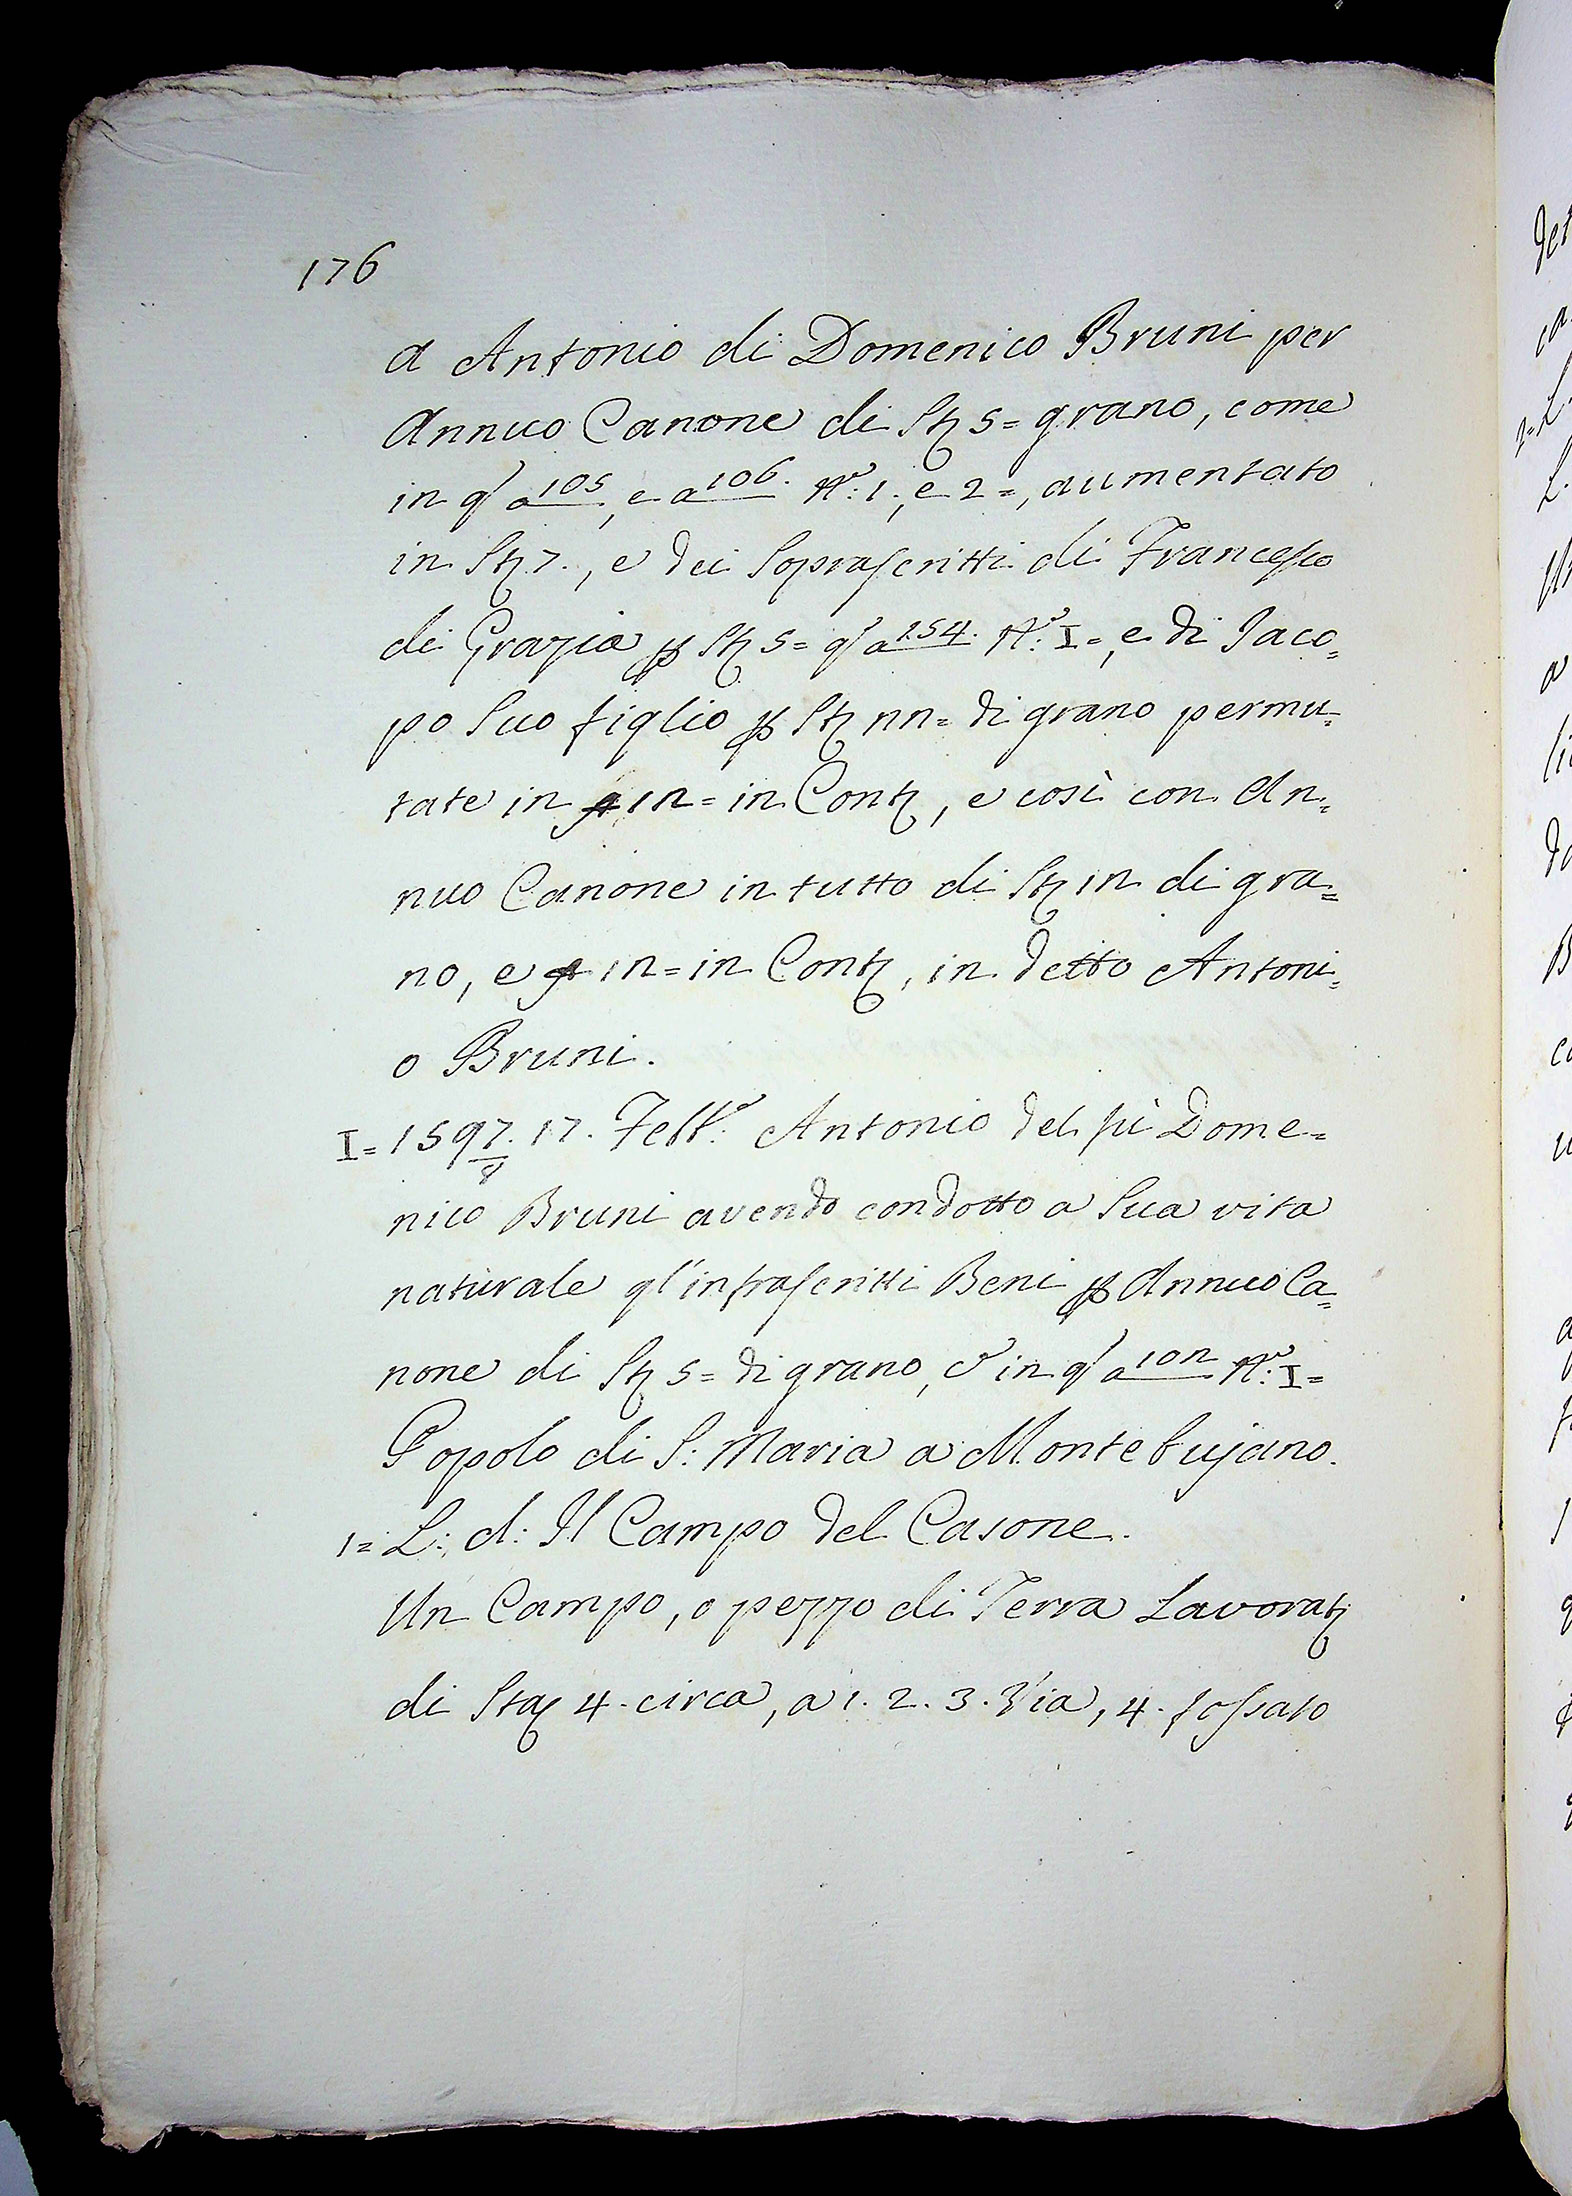 176
a Antonio di Domenico Bruni per
Annuo Canone di Stȝ 5= grano, come
in qº a 105, e a 106. Nº: 1., e 2=, aumentato
in Stȝ 7., e dei Soprascritti di Francesco
di Grazia ꝑ Stȝ 5= qº a 154. Nº: I=, e di Jaco=
po Suo figlio ꝑ Stȝ nn= di grano permu=
tate in 1n= in Contȝ, e così con An=
nuo Canone in tutto di Stȝ 1n di gra=
no, e 1n= in Contȝ, in detto Antoni=
o Bruni.
I= 1597/8. 17. Febbº: Antonio del fù Dome=
nico Bruni avendo condotto a Sua vita
naturale gl'infrascritti Beni ꝑ Annuo Ca=
none di Stȝ 5= di grano, in qº a 10n Nº: I=
Popolo di S: Maria a Montebujano.
1= L: d: Il Campo del Casone.
Un Campo, o pezzo di Terra Lavoratȝ
di Staȝ 4. circa, a 1. 2. 3. Via, 4. fossato